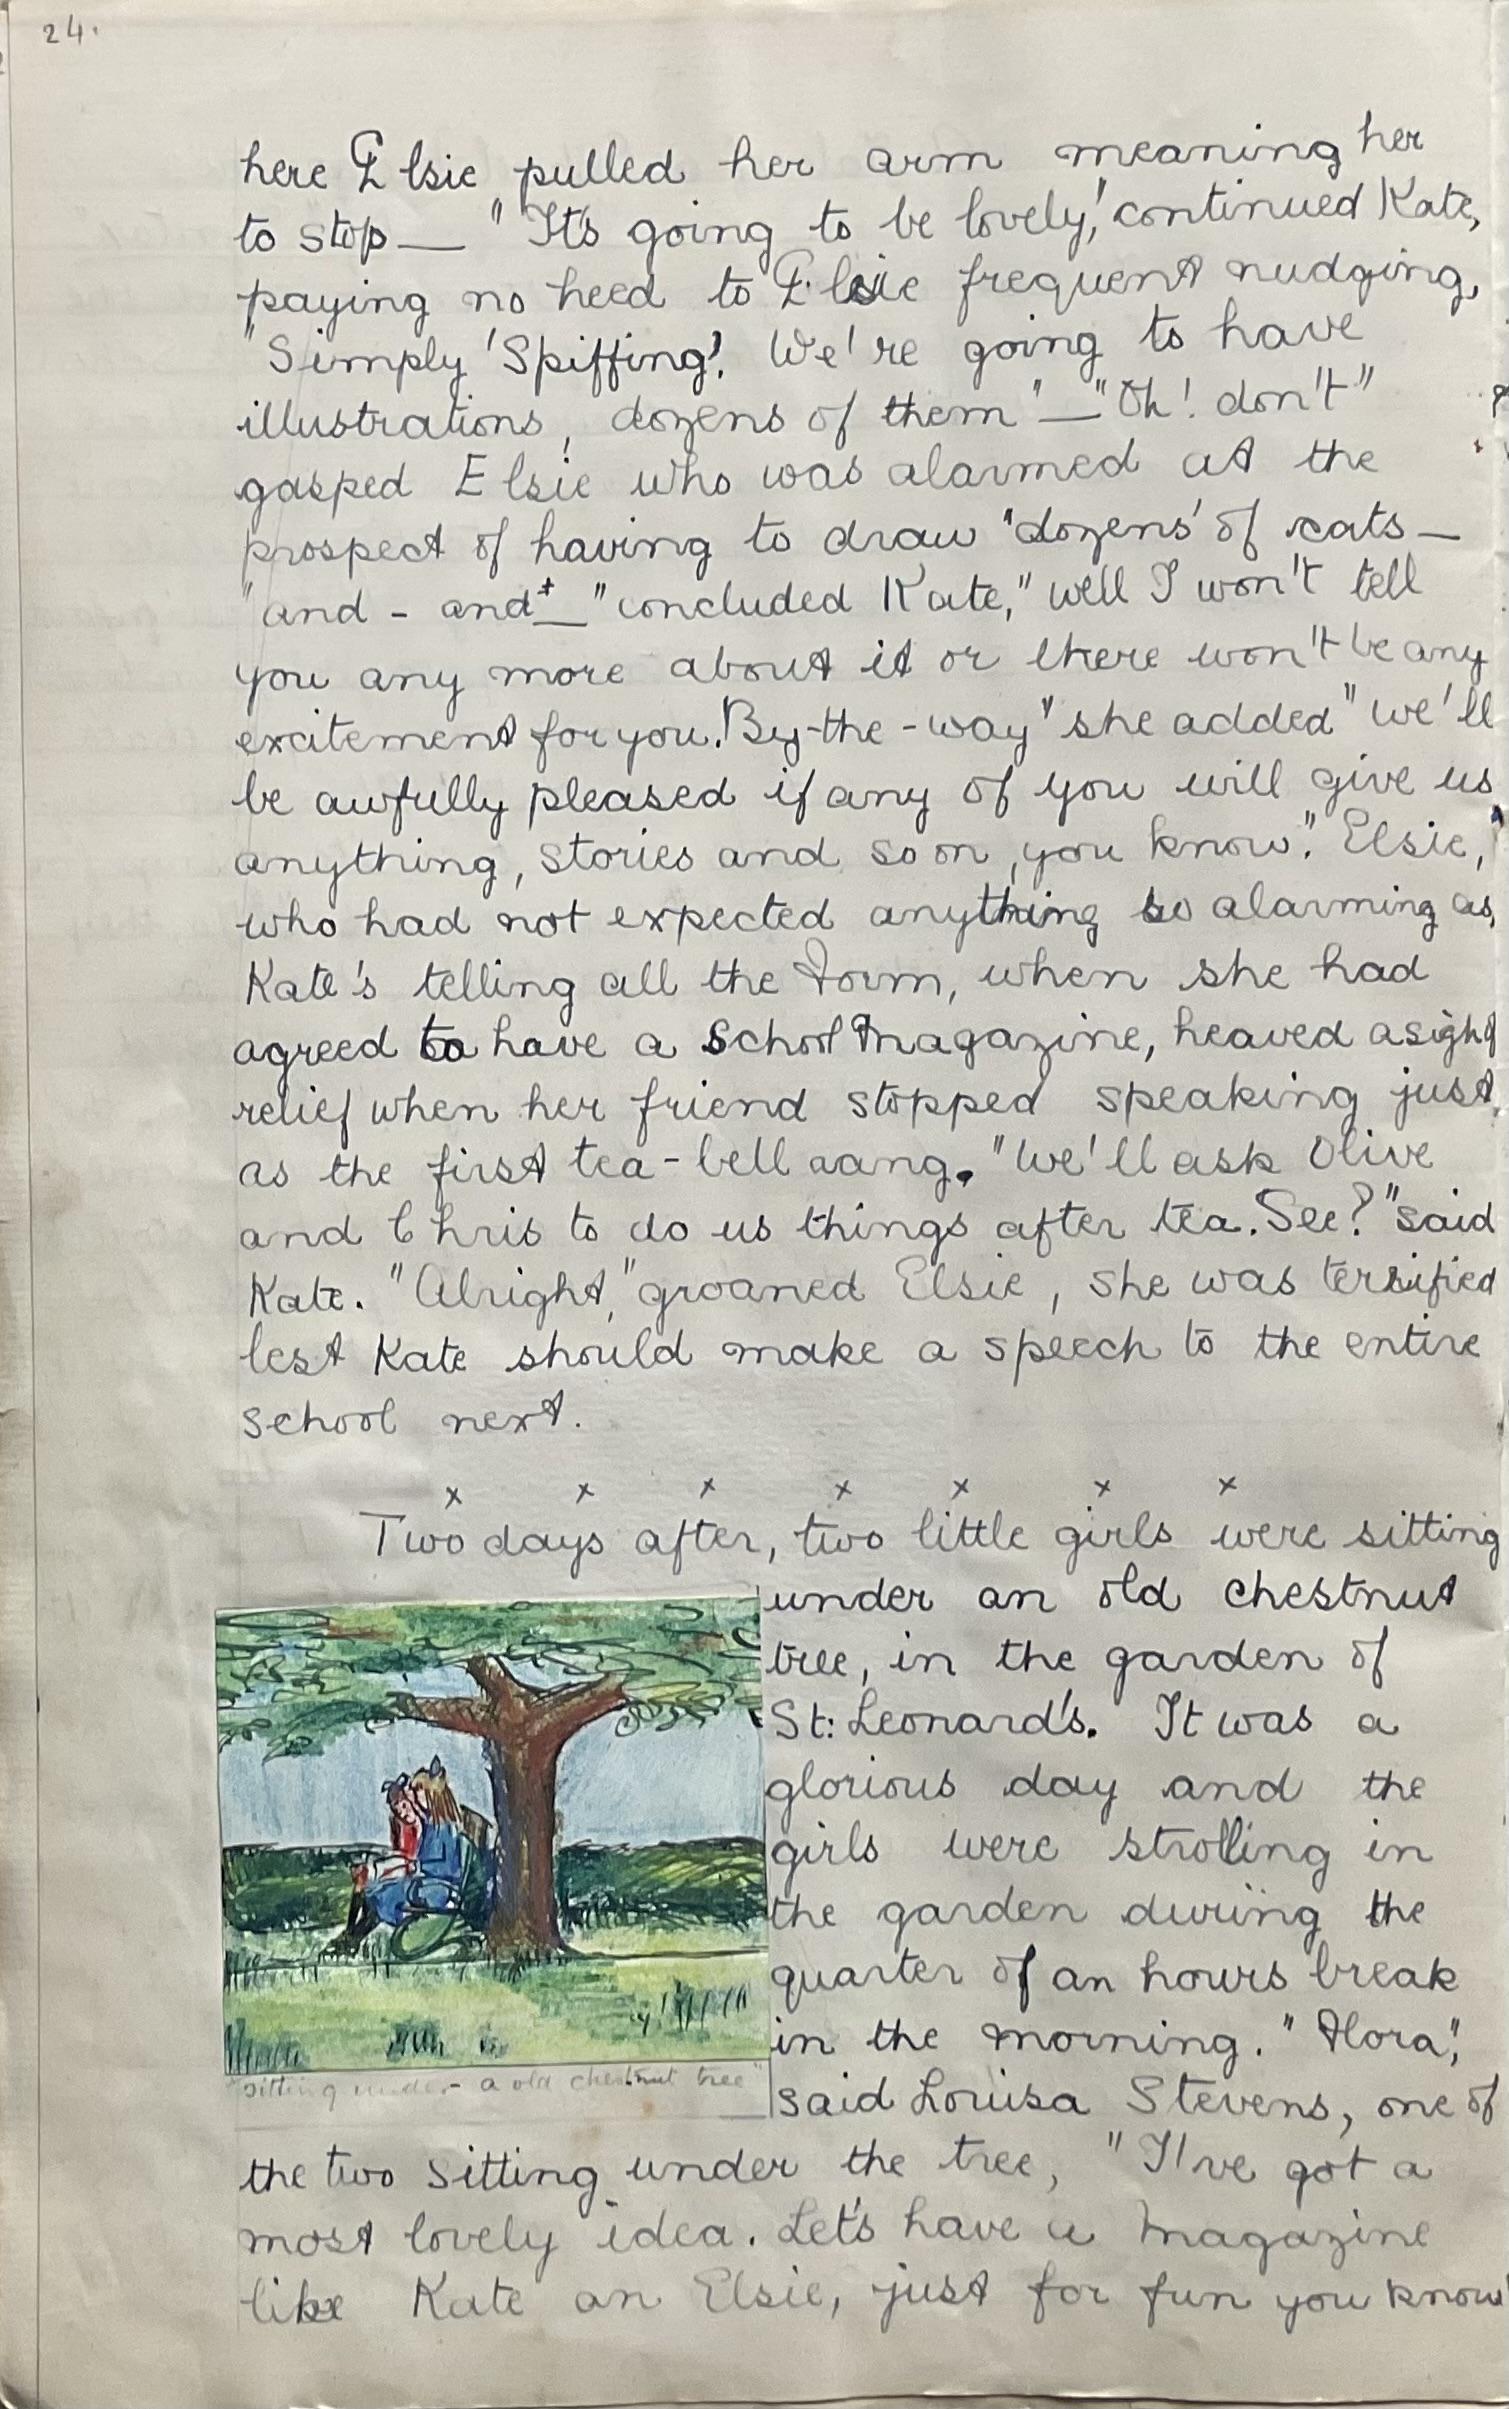 24.
here Elsie pulled her arm meaning her
to stop — "It's going to be lovely," continued Kate,
paying no heed to Elsie frequent nudging,
"Simply 'Spiffing'. We're going to have
illustrations, dozens of them" — "Oh! don't"
gasped Elsie who was alarmed at the
prospect of having to draw 'dozens' of cats —
"and - and + — " concluded Kate, "well I won't tell
you any more about it or there won't be any
excitement for you. By-the-way" she added "we'll
be awfully pleased if any of you will give us
anything, stories and so on, you know". Elsie,
who had not expected anything so alarming as,
Kate's telling all the Form, when she had
agreed to have a School Magazine, heaved a sigh of
relief when her friend stopped speaking just,
as the first tea-bell rang. "We'll ask Olive
and Chris to do us things after tea. See?" said
Kate. "Alright," groaned Elsie, she was terrified
lest Kate should make a speech to the entire
school next.
x x x x x x x
Two days after, two little girls were sitting
under an old chestnut
tree, in the garden of
St: Leonard's. It was a
glorious day and the
girls were strolling in
the garden during the
quarter of an hours break
in the morning. "Flora",
said Louisa Stevens, one of
"sitting under - a old chestnut tree"
the two sitting under the tree, "I've got a
most lovely idea. Let's have a magazine
like Kate an Elsie, just for fun you know"